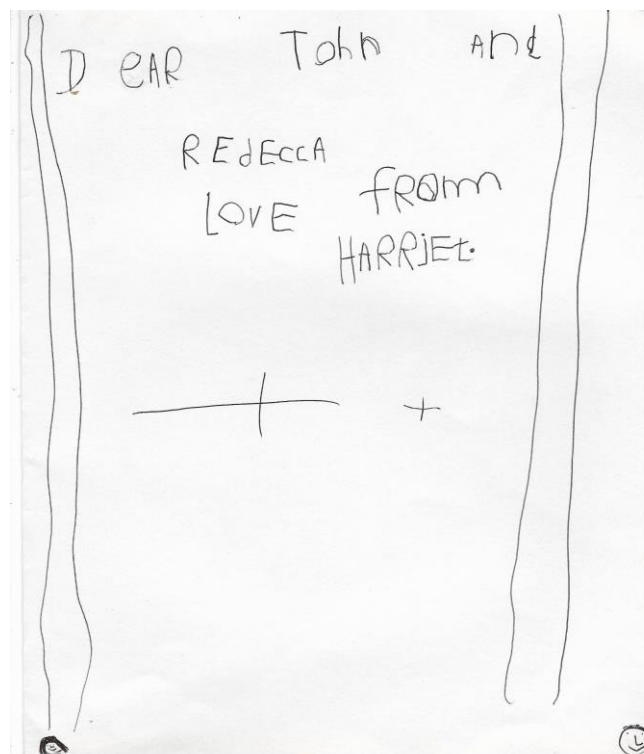 DEAR Tohn And
REdECCA
LOVE fROm
HARRiEt.